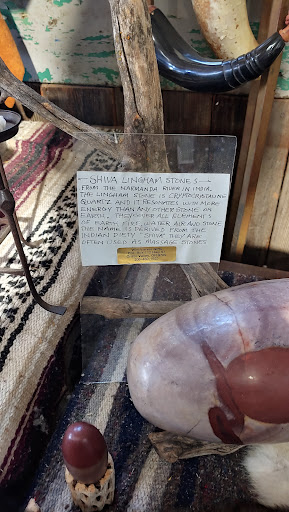 SHIVA LINGHAM STONES
FROM THE NARMANDA RIVER IN INDIA.
THE LINGHAM STONE IS CRYPTOCRYSTALINE
QUARTZ AND IT RESONATES WITH MORE
ENERGY THAN ANY OTHER STONE ON
EARTH. THEY COVER ALL ELEMENTS
OF EARTH, FIRE, WATER, AIR AND STONE
THE NAME IS DERIVED FROM THE
INDIAN DIETY "SHIVA" THEY ARE
OFTEN USED AS MASSAGE STONES